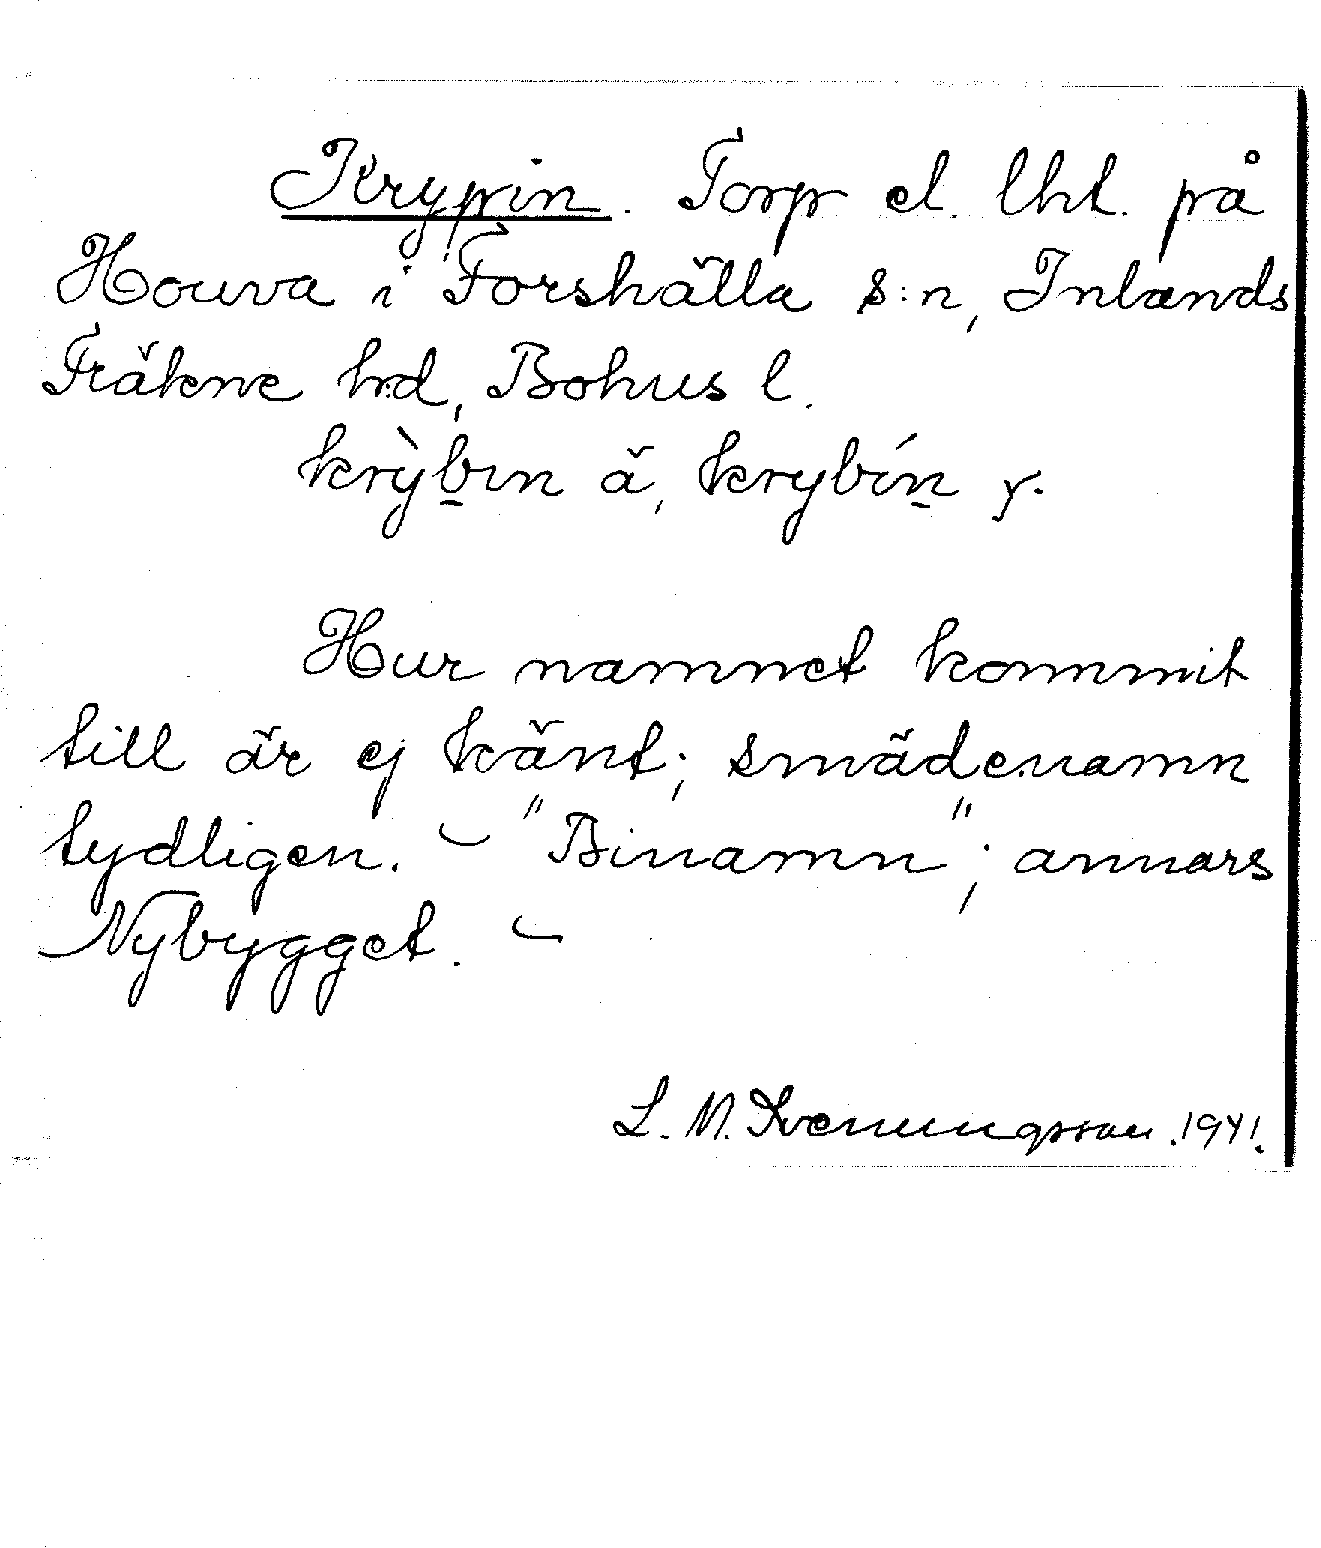 Krypin. Torp el. lht. på
Houva i Forshälla s:n, Inlands
Fräkne hd, Bohus l.
krỳbin ä, krybín y.
Hur namnet kommit
till är ej känt; smädenamn
tydligen. – "Binamn"; annars
Nybygget. –
L. M. Svenungsson. 1941.